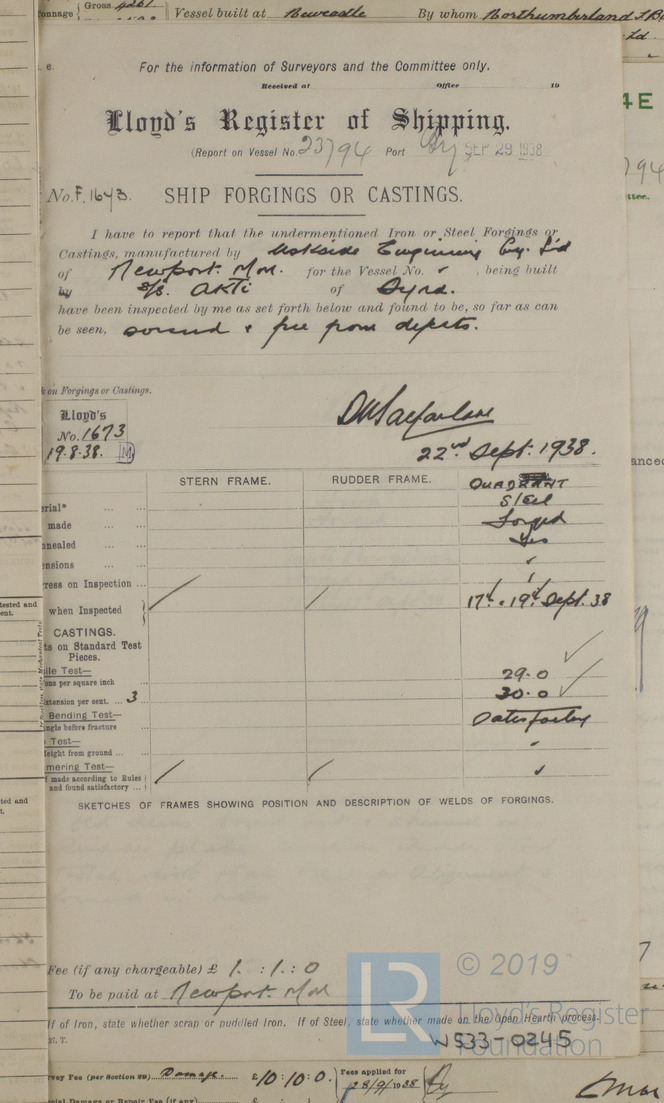 onnage Gross 4261 Vessel built at Newcastle By whom Northumberland S.B.
Ltd.
For the information of Surveyors and the Committee only.
Received at Office 19
Lloyd's Register of Shipping.
(Report on Vessel No. 23794 Port By SEP 29 1938
No. F. 1643. SHIP FORGINGS OR CASTINGS.
I have to report that the undermentioned Iron or Steel Forgings or
Castings, manufactured by Uskside Engineering Coy. Ltd
of Newport. Mon. for the Vessel No. , being built
by S/S. AKTI of Syra.
have been inspected by me as set forth below and found to be, so far as can
be seen, sound & free from defects.
k on Forgings or Castings.
Lloyd's
No. 1673
19.8.38. M
D Macfarlane
22nd Sept. 1938.
STERN FRAME. RUDDER FRAME. QUADRANT
erial* ... ... Steel
made ... ... Forged
nnealed ... ... Yes
ensions ... ...
ress on Inspection ...
when Inspected 17th. 19th Sept. 38
CASTINGS.
ts on Standard Test
Pieces.
ile Test—
ons per square inch ... 29.0
xtension per cent. ... 3 ... 30.0
Bending Test— Satisfactory
ngle before fracture ...
Test—
Height from ground ... ...
mering Test—
made according to Rules
and found satisfactory ... ...
SKETCHES OF FRAMES SHOWING POSITION AND DESCRIPTION OF WELDS OF FORGINGS.
Fee (if any chargeable) £ 1. : 1. : 0
To be paid at Newport. Mon
If of Iron, state whether scrap or puddled Iron. If of Steel, state whether made on the Open Hearth process.
W533-0245
LR © 2019
Lloyd's Register
Foundation
rvey Fee (per Section 29) Damage. £10:10:0. Fees applied for
28/9/1938
ecial Damage or Repair Fee (if any) £ : :